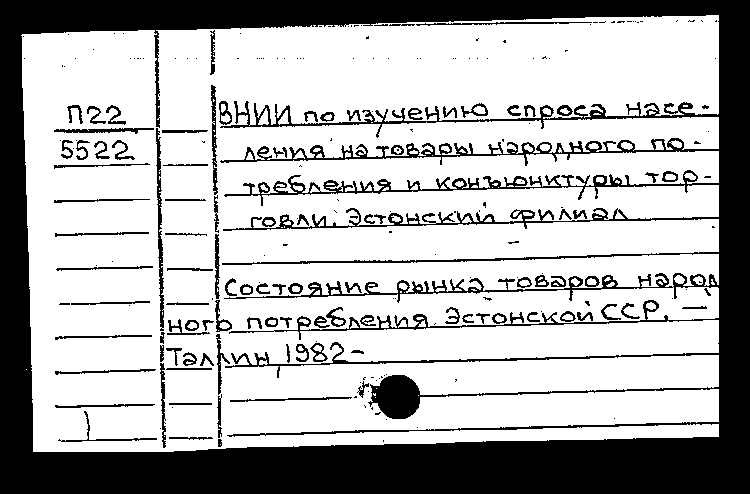 П22 ВНИИ по изучению спроса насе-
5522 ления на товары народного по-
требления и конъюнктуры тор-
говли. Эстонский филиал
Состояние рынка товаров народ
ного потребления Эстонской ССР. —
Таллин, 1982-